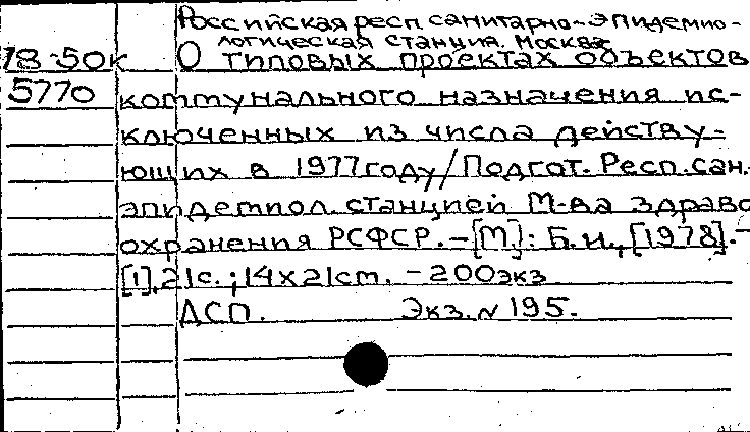 Российская респ санитарно-эпидемио-
логическая станция. Москва
78-50к О типовых проектах объектов
5770 коммунального назначения ис-
ключенных из числа действу-
ющих в 1977 году/Подгот. Респ. сан.
эпидемиол. станцией М-ва здраво
охранения РСФСР. – [М]: Б. и., [1978]. –
[1], 21с.; 14х21cm. – 200экз
ДСП. Экз. № 195.